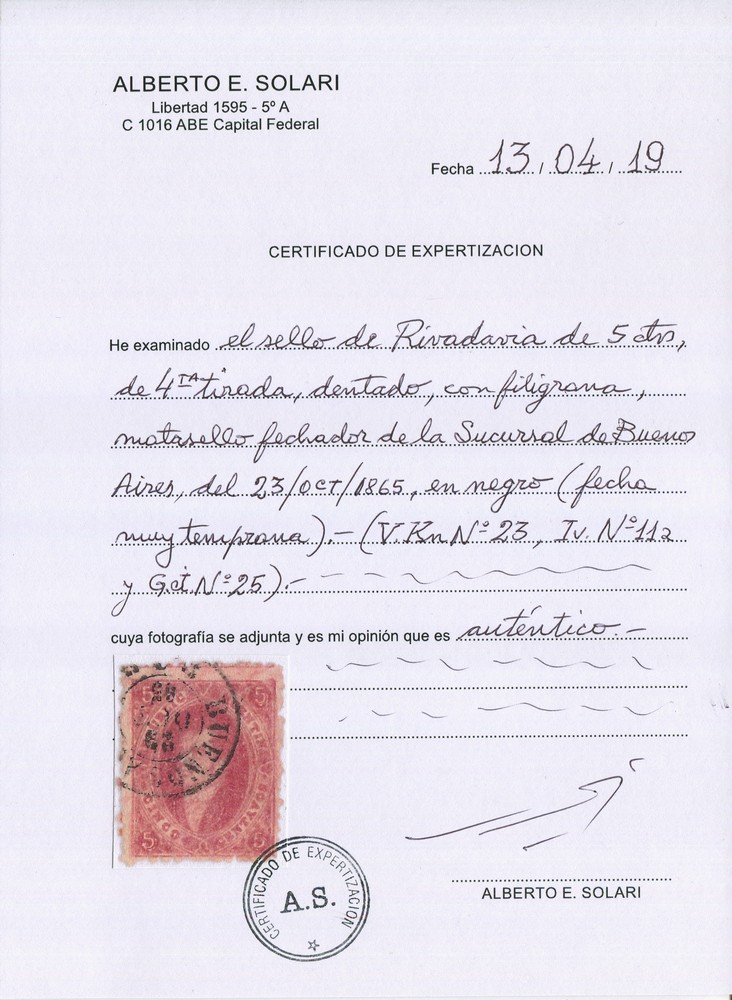 ALBERTO E. SOLARI
Libertad 1595 - 5º A
C 1016 ABE Capital Federal
Fecha 13 / 04 / 19
CERTIFICADO DE EXPERTIZACION
He examinado el sello de Rivadavia de 5 ctvs,
de 4TA tirada, dentado, con filigrana,
matasello fechador de la Sucursal de Buenos
Aires, del 23/OCT/1865, en negro (fecha
muy temprana).- (V. Kn Nº 23, Iv. Nº 11a
y Gct. Nº 25).-
cuya fotografía se adjunta y es mi opinión que es auténtico.-
5 5
BUENOS
5 5
CERTIFICADO DE EXPERTIZACION
A.S.
ALBERTO E. SOLARI